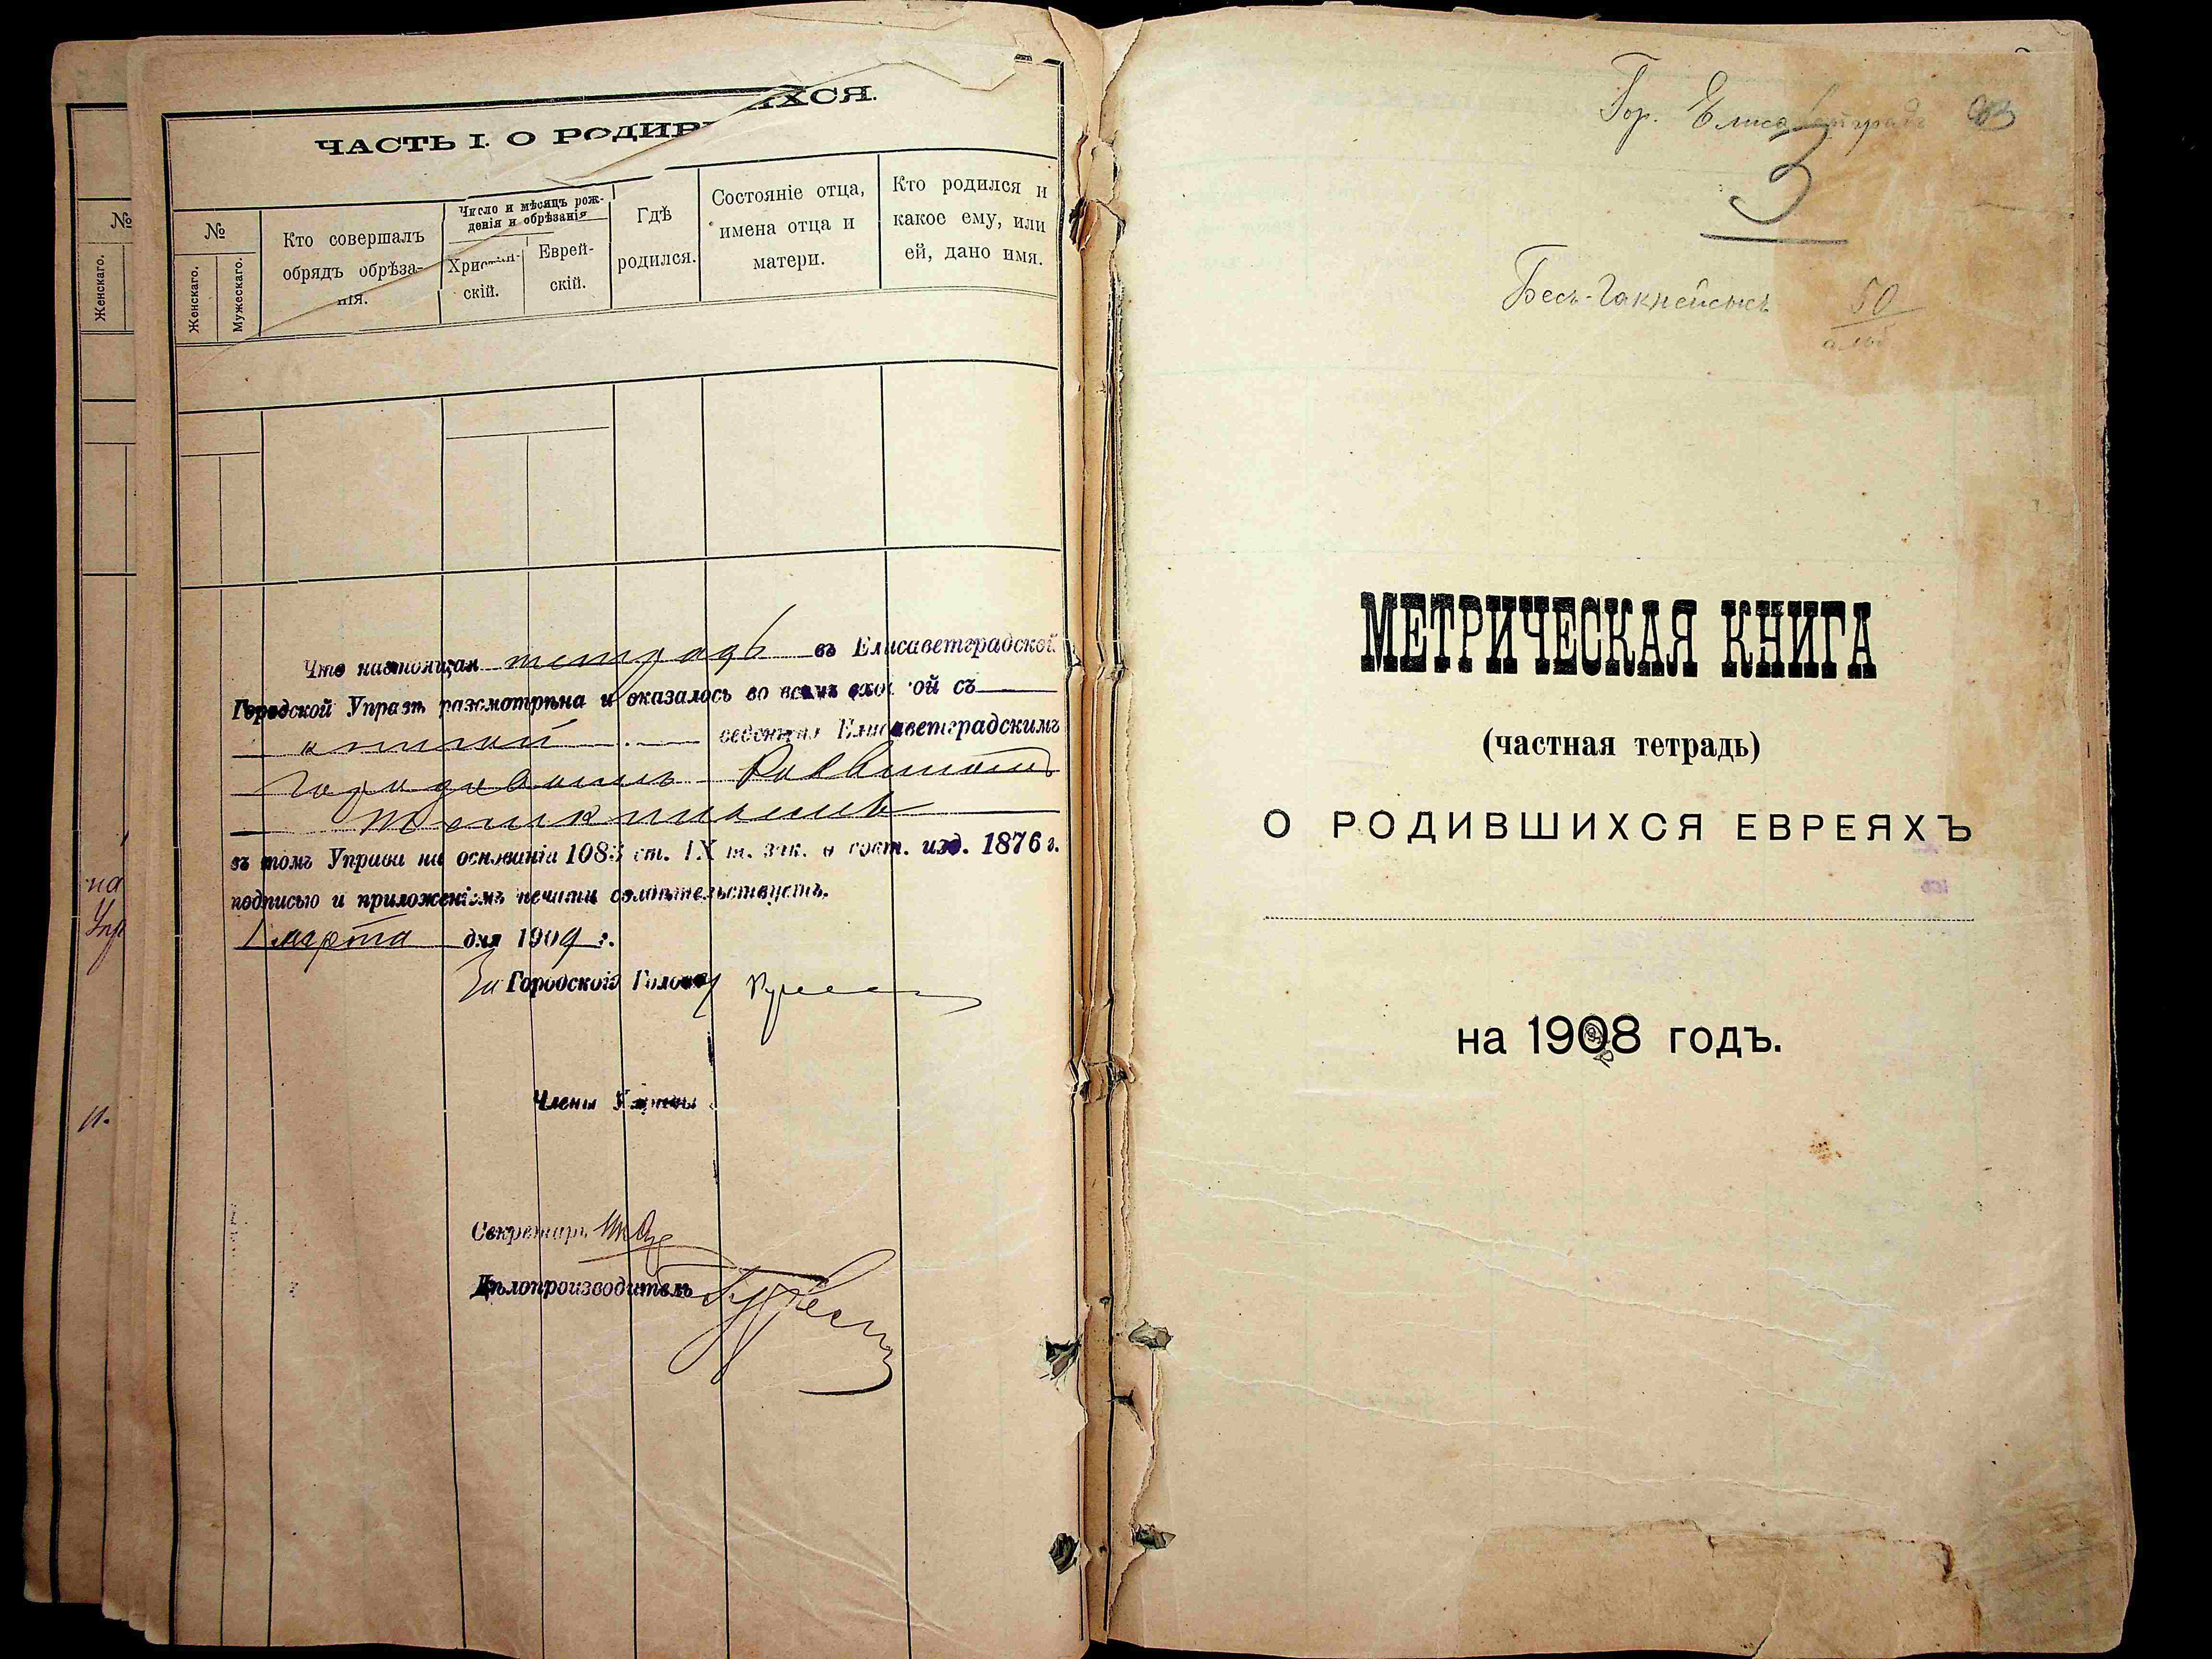 ЧАСТЬ I. О РОДИВ ИХСЯ.
№
Женскаго.
№
Женскаго.
Мужескаго.
Кто совершалъ
обрядъ обрѣза-
нія.
Число и мѣсяцъ рож-
денія и обрѣзанія
Христіан-
скій.
Еврей-
скій.
Гдѣ
родился.
Состояніе отца,
имена отца и
матери.
Кто родился и
какое ему, или
ей, дано имя.
Что настоящая тетрадь въ Елисаветградской
Городской Управѣ разсмотрѣна и оказалось во всемъ сход ой съ
книгой веденная Елисаветградскимъ
городовымъ Раввиномъ
въ томъ Управа на основаніи 1083 ст. IX т. зак. о сост. изд. 1876 г.
подписью и приложеніемъ печати свидѣтельствуетъ.
1 марта дня 1909 г.
За Городской Голова
Члены Управы
Секретарь
Дѣлопроизводитель
на
Упр
Гор. Елисаветградъ
3
50
МЕТРИЧЕСКАЯ КНИГА
(частная тетрадь)
О РОДИВШИХСЯ ЕВРЕЯХЪ
на 1908 годъ.